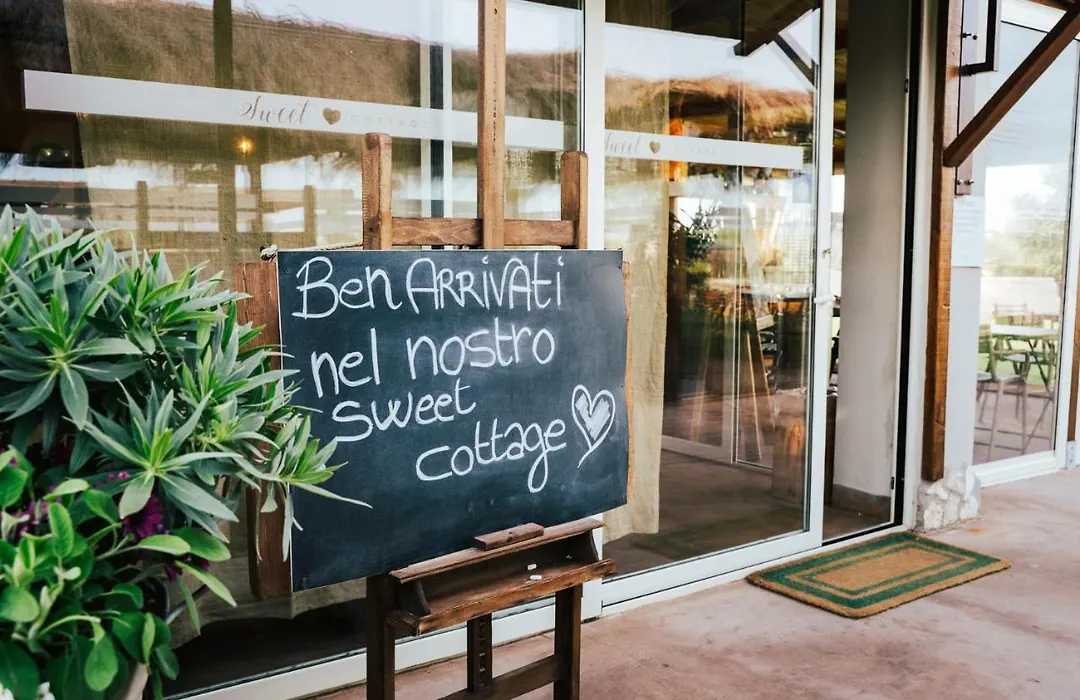 Sweet COTTAGE
Sweet
Ben ARRivATi
nel nostro
sweet
cottage